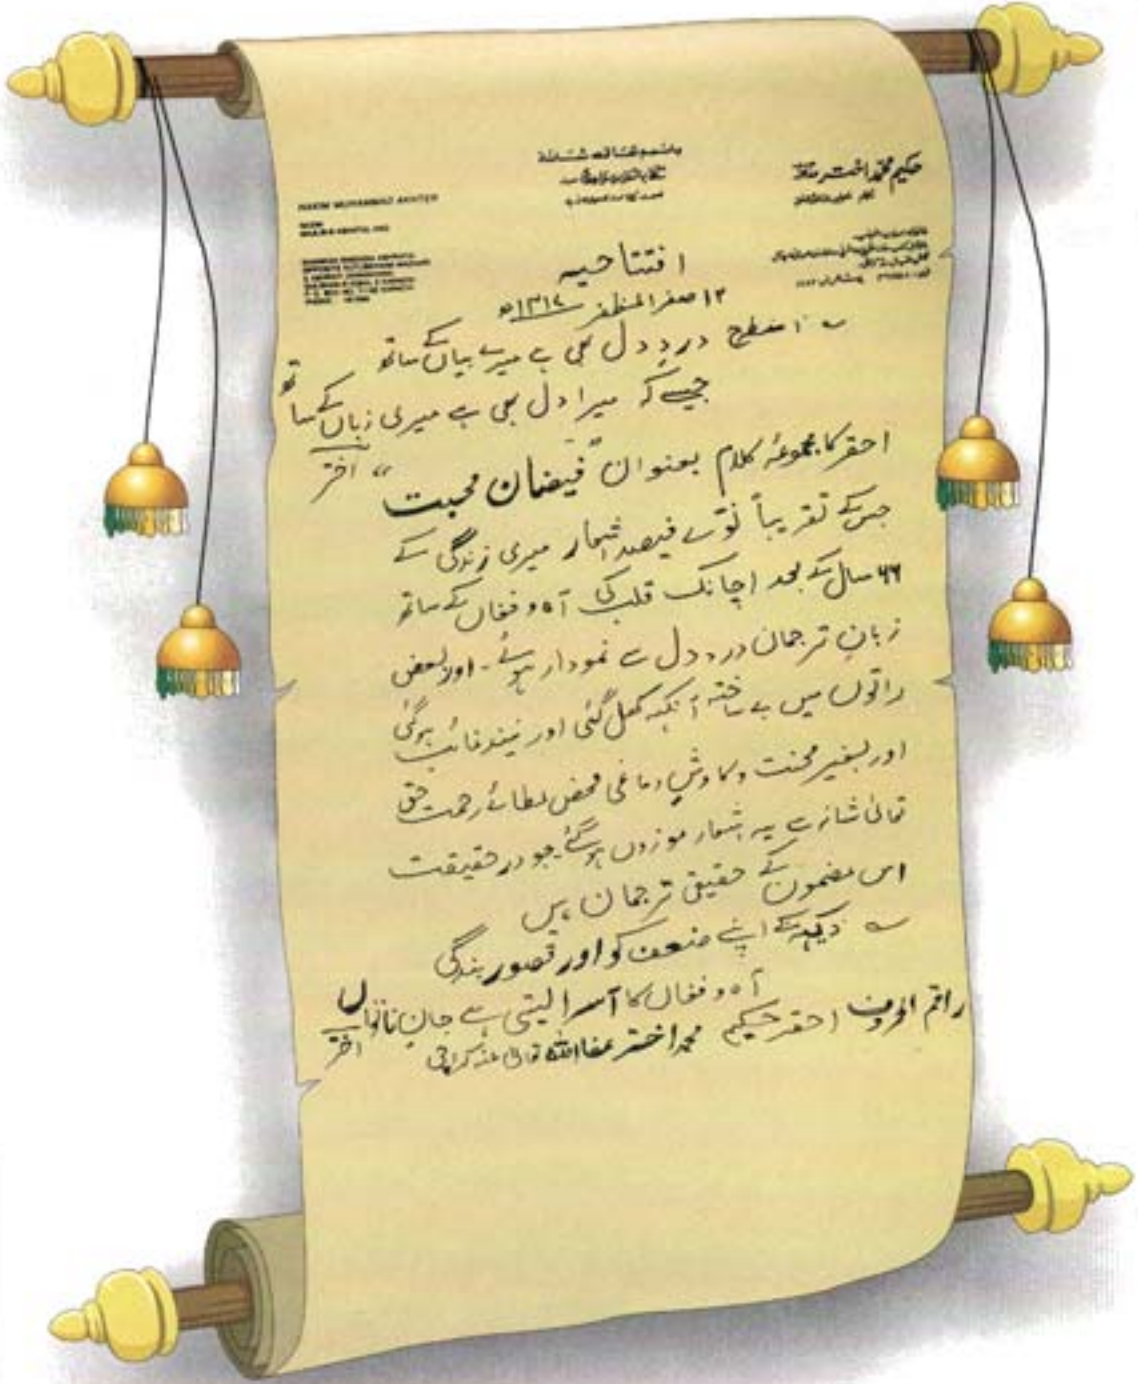 باسمہ تعالیٰ شانہ
حکیم محمد اختر
HAKIM MUHAMMAD AKHTER
افتتاحیہ
۱۲ صفر المظفر ۱۴۱۴ھ
اسطرح دردِ دل بھی ہے میرے بیاں کے ساتھ
جیسے کہ میرا دل بھی ہے میری زباں کے ساتھ
اختر
احقر کا مجموعۂ کلام بعنوان "فیضان محبت"
جس کے تقریباً نوّے فیصد اشعار میری زندگی کے
۶۶ سال کے بعد اچانک قلب کی آہ و فغاں کے ساتھ
زبانِ ترجمان دردِ دل سے نمودار ہوئے۔ اور بعض
راتوں میں بے ساختہ آنکھ کھل گئی اور نیند غائب ہوگئی
اور بغیر محنت و کاوشِ دماغی محض عطائے رحمت حق
تعالیٰ شانہ سے یہ اشعار موزوں ہو گئے۔ جو در حقیقت
اس مضمون کے حقیقی ترجمان ہیں
دیکھ کے اپنے ضعف کو اور قصورِ بندگی
آہ و فغاں کا آسرا لیتی ہے جانِ ناتواں
اختر
راقم الحروف احقر حکیم محمد اختر عفا اللہ تعالیٰ عنہ کراچی